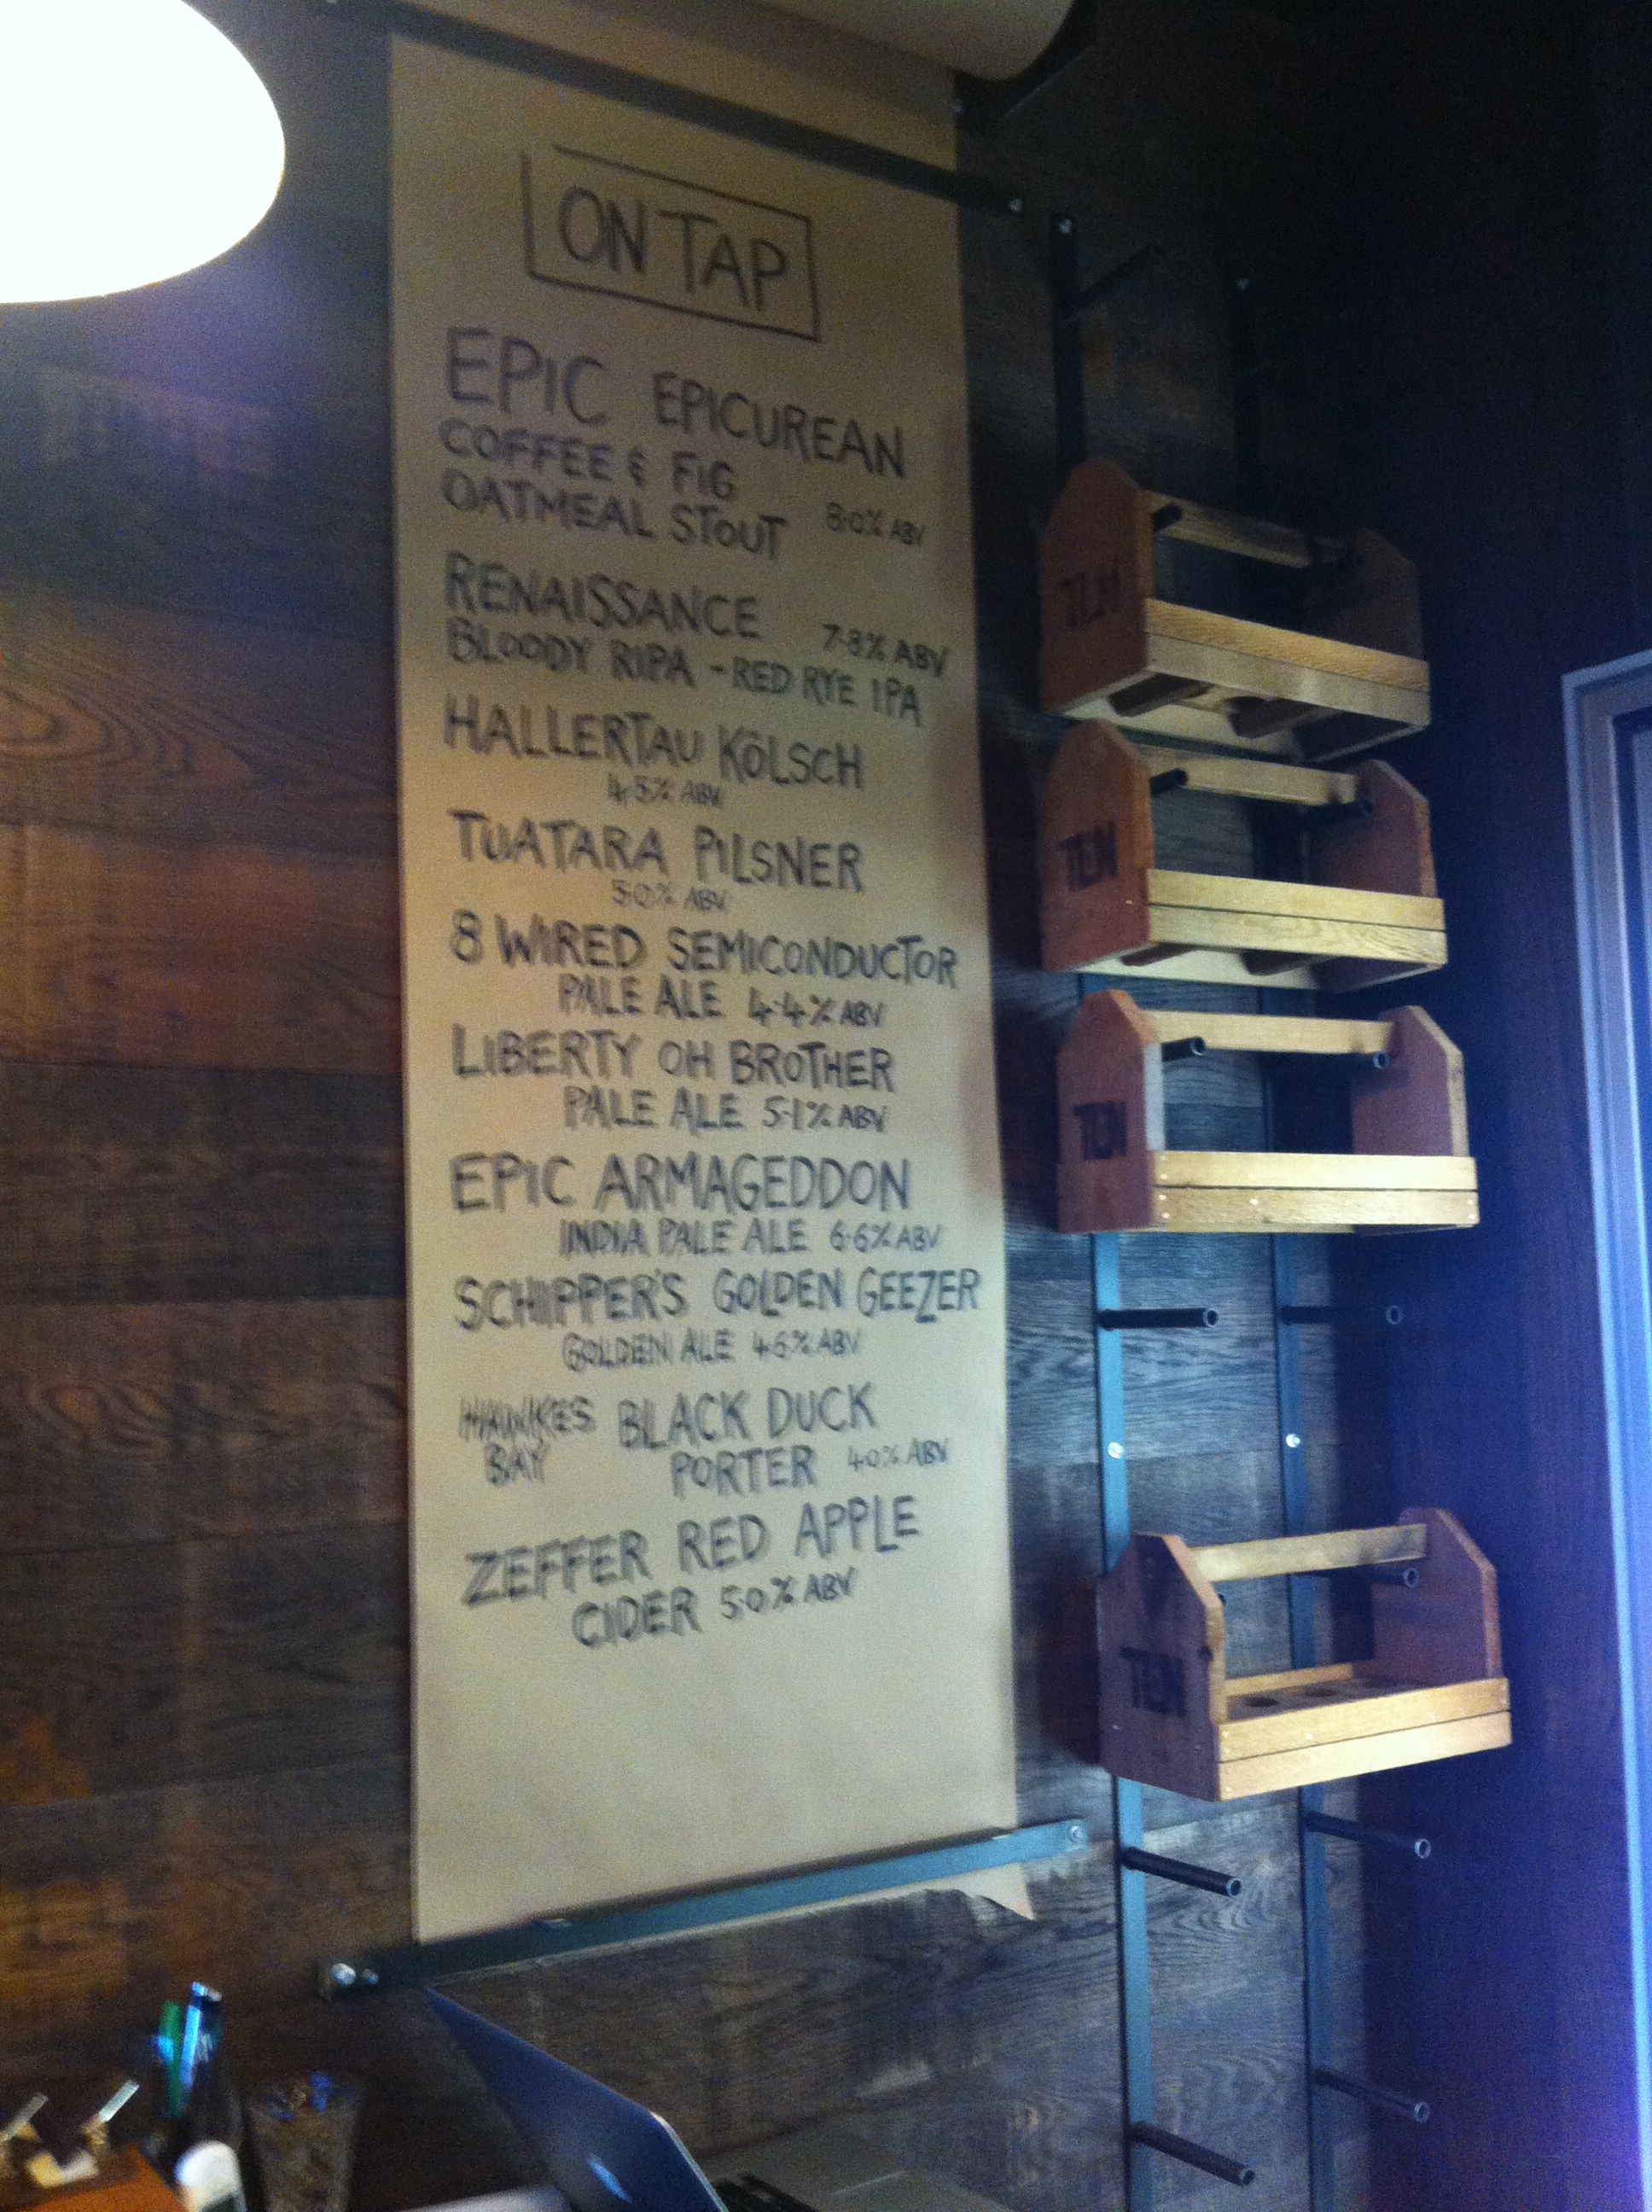 ON TAP
EPIC EPICUREAN
COFFEE & FIG
OATMEAL STOUT 8.0% ABV
RENAISSANCE 7.8% ABV
BLOODY RIPA - RED RYE IPA
HALLERTAU KÖLSCH
4.5% ABV
TUATARA PILSNER
5.0% ABV
8 WIRED SEMICONDUCTOR
PALE ALE 4.4% ABV
LIBERTY OH BROTHER
PALE ALE 5.1% ABV
EPIC ARMAGEDDON
INDIA PALE ALE 6.6% ABV
SCHIPPER'S GOLDEN GEEZER
GOLDEN ALE 4.6% ABV
HAWKES BLACK DUCK
BAY PORTER 4.0% ABV
ZEFFER RED APPLE
CIDER 5.0% ABV